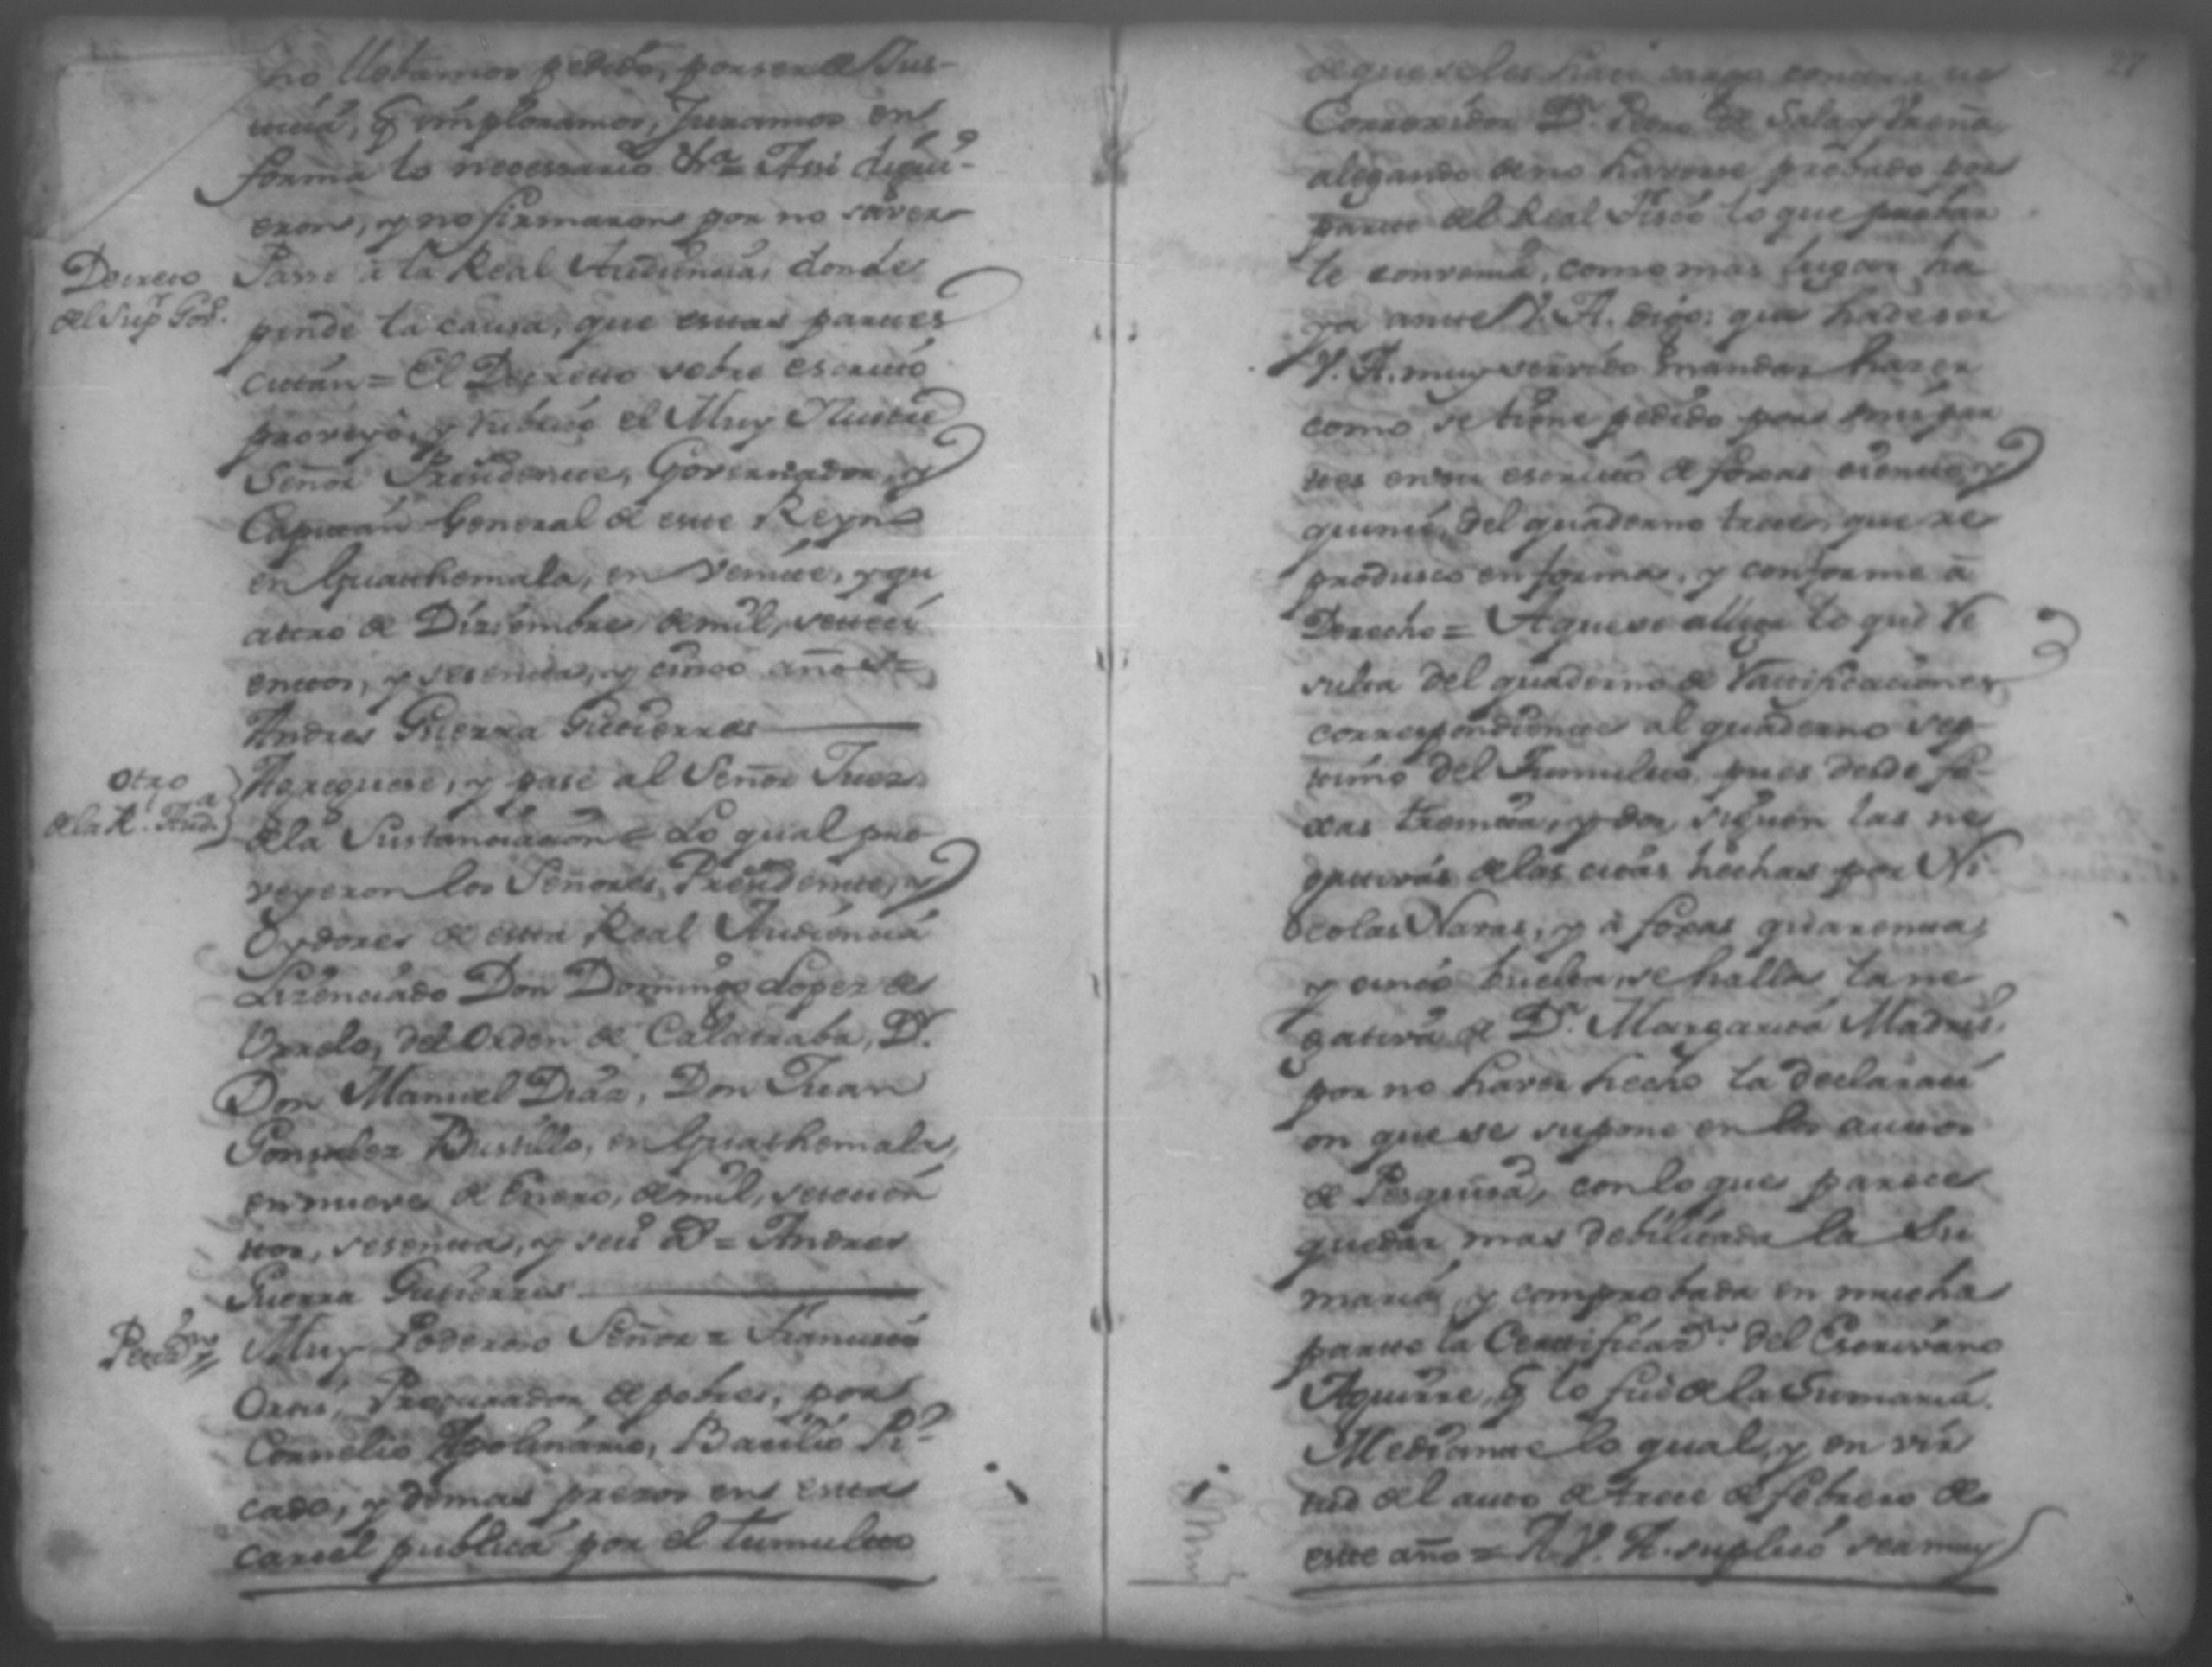 ho llebamos pedido, por ser de Jus-
ticia, q̃ imploramos, Juramos en
forma lo necessario &a = Assi dijeri-
eron, y no firmaron por no saver
Decreto
del Sup.r Gov.o
Passe à la Real Audiencia, donde
pende la causa, que estas partes
cittan = El Decretto sobre escritto
proveyò, y rubricò el Muy Ilustre
Señor Presidente, Governador, y
Capitan General de este Reyno
en Guatthemala, en veinte, y qu
attro de Diziembre, de mil, settecì
enttos, y sesentta, y cinco años =
Andres Guerra Gutierres
Otro
de la R. Aud.a
Agreguese, y pase al Señor Juez
de la Sustanciacion = Lo qual pro
veyeron los Señores, Presidente, y
Oydores de esta Real Audiencia
Lizenciado Don Domingo Lopez de
Urrelo, del Orden de Calatraba, D.r
Don Manuel Diaz, Don Juan
Gonzalez Bustillo, en Guathemala,
en nueve de Enero, de mil, settecien
ttos, sesentta, y seis a.s = Andres
Guerra Gutierres
Pedim.to
Muy Poderoso Señor = Francisco
Ortiz, Procurador de pobres, por
Cornelio Apolinario, Bacilio Pi-
cado, y demas presos en estta
carcel publica por el tumultto
27
de que se les haci cargo contra su
Corregidor D.n Pedro de Salas Ureña
alegando de no haverse probado por
partte del Real Fisco lo que probar
le convenia, como mas lugar ha
ya antte V. A. digo: que hade ser
V. A. muy servido mandar hazer
como se tiene pedido por mis par
ttes en su escritto de foxas vientte, y
quinze, del quaderno trece, que re
produsco en forma, y conforme à
Derecho = A que se allega lo que re
sulta del quaderno de rattificaciones
correspondiente al quaderno sep
timo del Tumultto, pues desde fo-
xas treintta, y dos, siguen las ne
gativas de las citas hechas por Ni
colas Navas, y à foxas quarentta,
y cinco buelta, se halla la ne
gativa de D.a Margarita Madris,
por no haver hecho la declaraci
on que se supone en los auttos
de Pesquisa, con lo que parece
quedar mas debilitada la Su
maria, y comprobada en mucha
partte la Certtificaz.on del Escrivano
Aguirre, q̃ lo fue de la Sumaria.
Mediante lo qual, y en vir
tud del auto de trece de febrero de
este año = A V. A. suplico sea muy